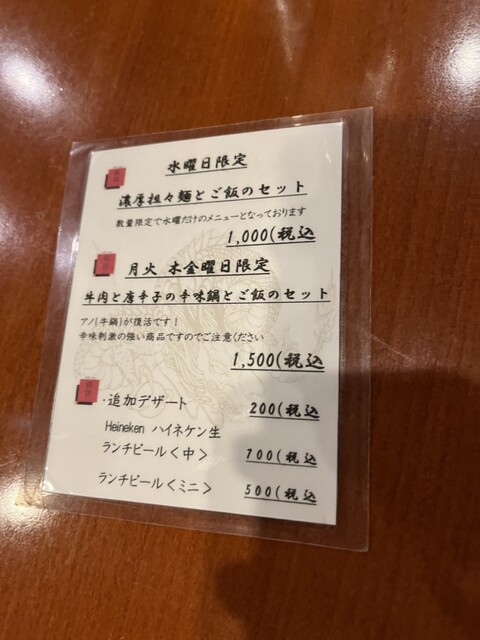 水曜日限定
濃厚担々麺とご飯のセット
数量限定で水曜だけのメニューとなっております
1,000(税込
月火 木金曜日限定
牛肉と唐辛子の辛味鍋とご飯のセット
アノ(牛鍋)が復活です！
辛味刺激の強い商品ですのでご注意ください
1,500(税込
・追加デザート 200(税込
Heineken ハイネケン生
ランチビール<中> 700(税込
ランチビール<ミニ> 500(税込